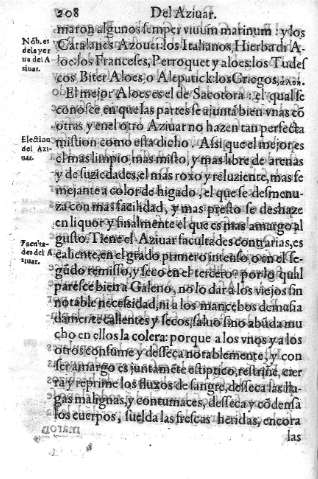 208 Del Aziuar.
maron algunos semper viuum marinum: y los
Catalanes Azouer: los Italianos, Hierba d A-
loe: los Franceses, Perroquet y aloes: los Tudes
cos Biter Aloes, o Alepatick: los Griegos,
El mejor Aloes es el de Sacotora: el qual se
conosce en que las partes se ajuntã bien vnas cõ
otras y en el otro Aziuar no hazen tan perfecta
mistion como esta dicho. Assi que el mejor es
el mas limpio, mas misto, y mas libre de arenas
y de suziedades, el mas roxo y reluziente, mas se
mejante a color de higado, el que se desmenu-
za con mas facilidad, y mas presto se deshaze
en liquor y finalmente el que es mas amargo al
gusto. Tiene el Aziuar facultades contrarias, es
caliente, en el grado primero intenso, o en el se-
gũdo remisso, y seco en el tercero: por lo qual
paresce bien a Galeno, no lo dar a los viejos sin
notable necessidad, ni a los mancebos demasia
damẽte calientes y secos, saluo sino abũda mu-
cho en ellos la colera: porque a los vnos y a los
otros consume y desseca notablemente, y con
ser amargo es juntamẽte estiptico, restriñe, cier
ra y reprime los fluxos de sangre, desseca las lla-
gas malignas, y contumaces, desseca y cõdensa
los cuerpos, suelda las frescas heridas, encora
las
Nõb. es
de la yer
ua del A-
ziuar.
Election
del Azi-
uar.
Facultã-
des del A
ziuar.